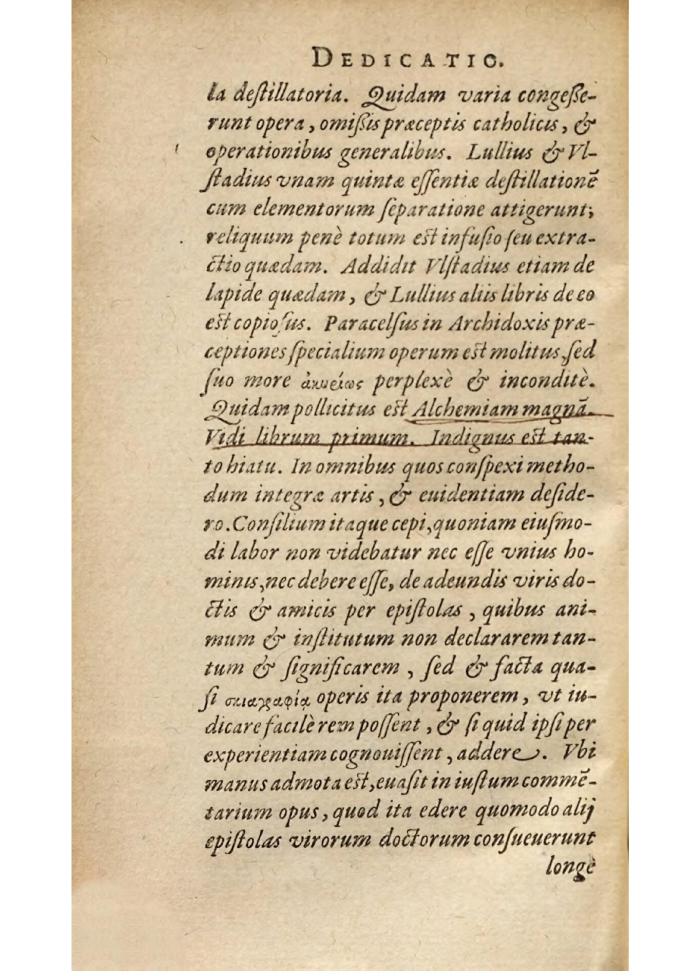 DEDICATIO.
la deſtillatoria. Quidam varia congeſſe-
runt opera, omiſſis præceptis catholicis, &
operationibus generalibus. Lullius & Vl-
ſtadius vnam quintæ eſſentiæ deſtillationẽ
cum elementorum ſeparatione attigerunt;
reliquum penè totum eſt infuſio ſeu extra-
ctio quædam. Addidit Vlſtadius etiam de
lapide quædam, & Lullius aliis libris de eo
eſt copioſus. Paracelſus in Archidoxis præ-
ceptiones ſpecialium operum eſt molitus, ſed
ſuo more ἀκυρίως perplexè & inconditè.
Quidam pollicitus eſt Alchemiam magnã.
Vidi librum primum. Indignus eſt tan-
to hiatu. In omnibus quos conſpexi metho-
dum integræ artis, & euidentiam deſide-
ro. Conſilium itaque cepi, quoniam eiuſmo-
di labor non videbatur nec eſſe vnius ho-
minis, nec debere eſſe, de adeundis viris do-
ctis & amicis per epiſtolas, quibus ani-
mum & inſtitutum non declararem tan-
tum & ſignificarem, ſed & facta qua-
ſi σκιαγραφίᾳ operis ita proponerem, vt iu-
dicare facilè rem poſſent, & ſi quid ipſi per
experientiam cognouiſſent, addere. Vbi
manus admota eſt, euaſit in iuſtum commẽ-
tarium opus, quod ita edere quomodo alij
epiſtolas virorum doctorum conſueuerunt
longè